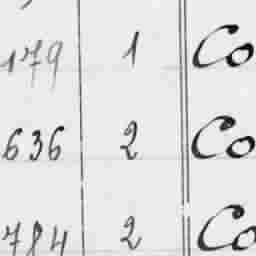 179 1 Co
636 2 Co
784 2 Co